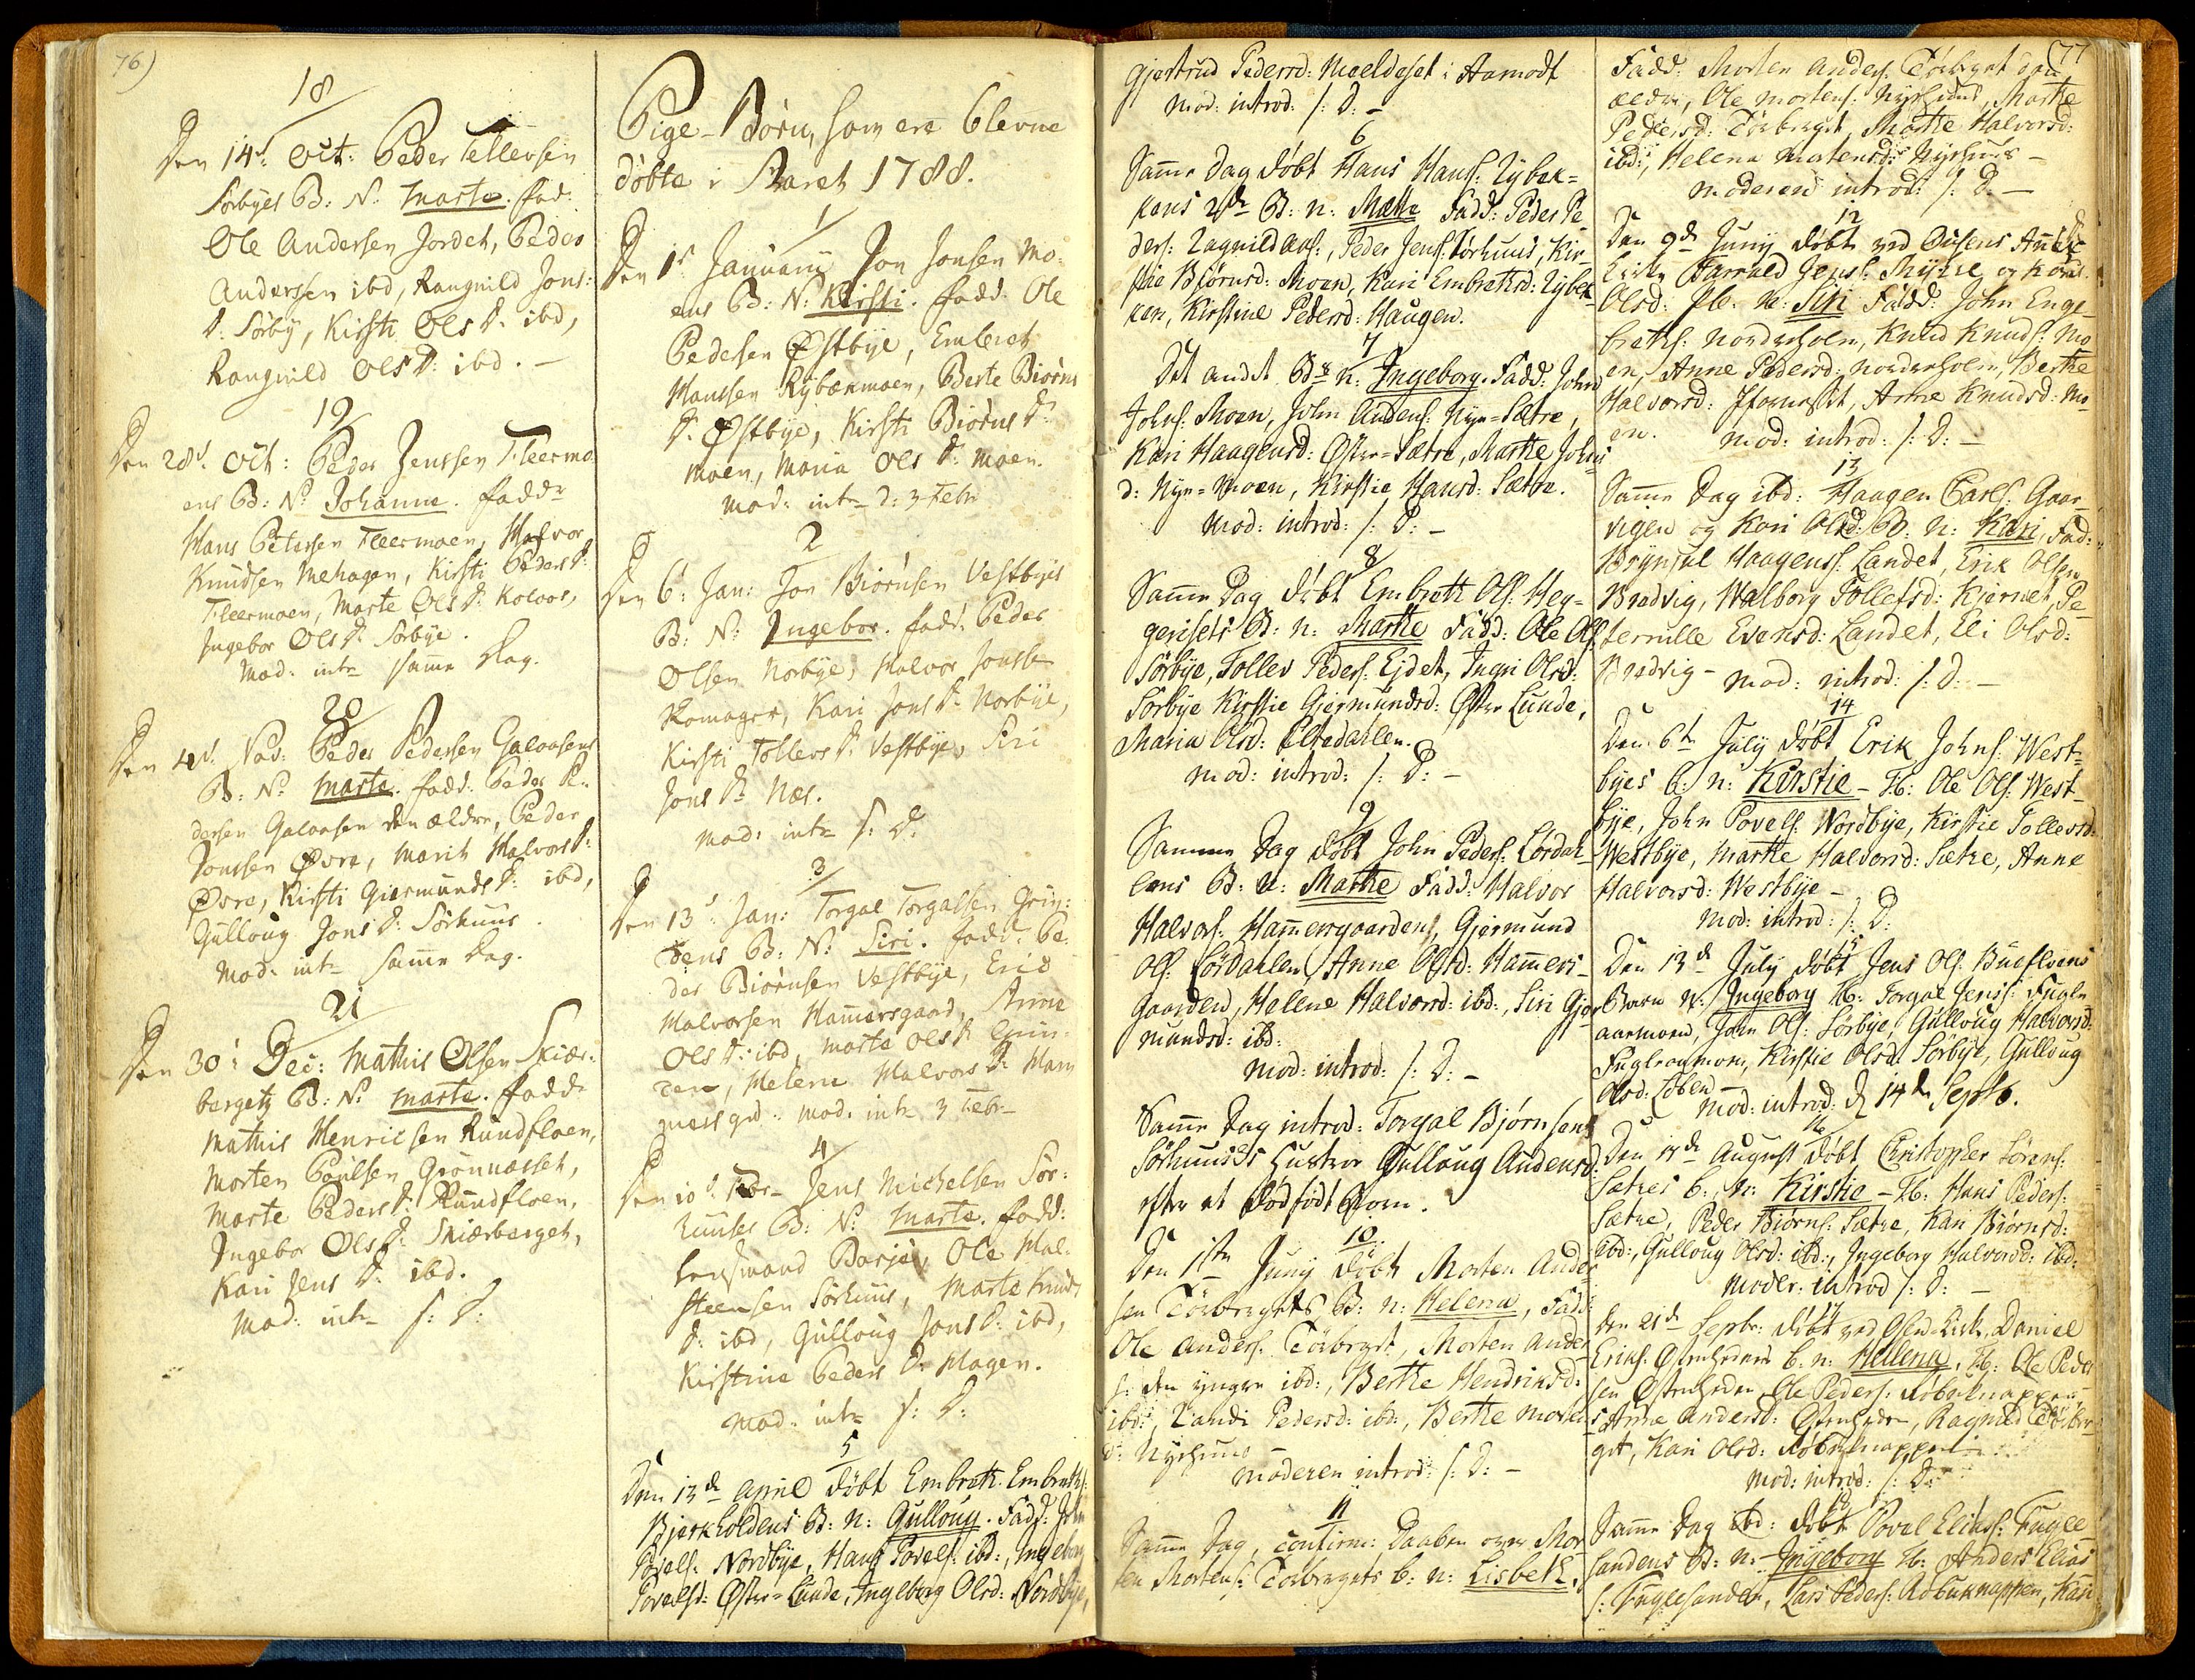 76)
18
Den 14d. Oct: Peder Tellevsen
Sørbyes B: N: Marte. fad:
Ole Andersen Jordet, Peder
Andersen ibd, Rangnild Jons:
D: Sørby, Kirsti Ols D: ibd,
Rangnild Ols D: ibd. –
19
Den 28d. Oct: Peder Jenssen Fleermo
ens B: N: Johanne. fadd:
Hans Petersen Fleermoen, Halvor
Knudsen Mehagen, Kirsti Peders D:
Fleermoen, Marte Ols D: Koloos,
Ingebor Ols D: Sørbye.
Mod: intr samme Dag.
20
Den 4d. Nov: Peder Pedersen Galaasens
B: N: Marte. fadd: Peder Pe-
dersen Galaasen den ældre, Peder
Jonssen Øvre, Marit Halvors D:
Øvre, Kirsti Giermunds D: ibd,
Gulloug Jons D: Sørhuus.
Mod: intr samme Dag.
21
Den 30: Dec: Mathis Olsen Skiær-
bergets B: N: Marte. fadd:
Mathis Henricsen Rundfloen,
Morten Poulsen Grønnæsset,
Marte Peders D: Rundfloen,
Ingebor Ols D: Skiærberget,
Kari Jens D: ibd.
Mod: intr s: D:
Pige-Børn, som ere blevne
døbte i Aaret 1788.
1
Den 1d Januarii Jon Jonsen Mo-
ens B: N: Kirsti. fadd: Ole
Pedersen Østbye, Embret
Hanssen Rybækmoen, Berte Biørns
D: Østbye, Kirsti Biørns D:
Moen, Maria Ols D: Moen.
Mod: intr d: 3 Febr
2
Den 6: Jan: Jon Biørnsen Vestbyes
B: N: Ingebor. fadd: Peder
Olsen Norbye, Halvor Jonssen
Komager, Kari Jons D: Norbye,
Kirsti Tollevs D: Vestbye, Siri
Jons D: Næs.
Mod: intr s: D:
3
Den 13d. Jan: Torgal Torgalsen Grin-
dens B: N: Siri. fadd: Pe-
der Biørnsen Vestbye, Eric
Halvorsen Hamersgaard, Anne
Ols D: ibd, Marte Ols D: Grin-
den, Helene Halvors D: Ham
mersgrd: Mod: intr 3 Febr
4
Den 10d. Febr Jens Michelsen Sør-
huuses B: N: Marte. fadd:
Lensmand Basje, Ole Hal-
steensen Sørhuus, Marte Knuds
D: ibd, Gulloug Jons D: ibd,
Kirstine Peders D: Hagen.
Mod: intr s: D:
5
Den 13de April døbt Embreth Embreths:
Bjerkholdens B: n: Gulloug. Fadd: John
Povels: Nordbye, Hans Povels: ibd:, Ingeborg
Povelsd: Øster-Lunde, Ingeborg Olsd: Nordbye,
Gjertrud Pedersd: Moeldeset i Aamodt
Mod: introd: s: D: –
6
Samme Dag døbt Hans Hans: Lybek-
kens 2de B: n: Mathe Fadd: Peder Pe
ders: Lagnildens:, Peder Jens: Sørhuus, Kir-
stie Bjørnsd: Moen, Kari Embrethsd: Lybek-
ken, Kirstine Pedersd: Haugen.
7
Det andet B: n: Ingeborg. Fadd: John
Johns: Moen, John Audens: Nye-Sætre,
Kari Haagensd: Øster-Sætre, Marthe Johns
d: Nye-Moen, Kirstie Hansd: Sætre.
Mod: introd: s: D: –
8
Samme Dag døbt Embreth Ols: Heg-
gerisets B: n: Marthe Fadd: Ole Ols:
Sørbye, Tollev Peders: Ejdet, Ingri Olsd:
Sørbye Kirstie Gjermundsd: Øster Lunde,
Maria Olsd: Eltedahlen.
Mod: introd: s: D: –
9
Samme Dag døbt John Peders: Lørdah-
lens B: n: Marthe Fadd: Halvor
Halvors: Hammersgaarden, Gjermund
Ols: Lørdahlen, Anne Olsd: Hammers-
gaarden, Helene Halvorsd: ibd:, Siri Gjer
mundsd: ibd:
Mod: introd: s: D: –
Samme Dag introd: Torgal Bjørnsens
Sørhuusets Hustroe Gulloug Audensd:
efter et dødfødt Barn.
10.
Den 1ste Juny døbt Morten Ander
sen Tørbergets B: n: Helena, Fadd:
Ole Anders: Tørberget, Morten Ander
s: den yngre ibd:, Berthe Hendriksd:
ibd:, Randi Pedersd: ibd:, Berthe Morten
d: Nyehuus –
Moderen introd: s: D: –
11
Samme Dag, confirm: Daaben over Mor
ten Mortens: Torbergets b: n: Lisbeth.
77
Fadd: Morten Anders: Tørberget den
ældre, Ole Mortens: Nyehuus, Marthe
Pedersd: Tørberget, Marthe Halvorsd:
ibd:, Helena Mortensd: Nyehuus –
Moderen introd: s: D: –
12
Den 9de Juny døbt ved Ousens Annex
Kirke Harrald Jens: Mykle og Kari
Olsd: B: n: Siri Fadd: John Enge-
breths: Nordenholen, Knud Knuds: Mo
en, Anne Pedersd: Nordenholen, Berthe
Halvorsd: , Anne Knudsd: Mo
en. Mod: introd: s: D: –
13
Samme Dag ibd: Haagen Carls: Gaar-
vigen og Kari Olsd: B: n: Kari, Fad:
Brynjul Haagens: Landet, Erik Olsen
Bredvig, Walborg Tollefsd: Kjernet, Pe
ternille Evensd: Landet, Eli Olsd:
Bredvig – Mod: introd: s: D: –
14
Den 6te July døbt Erik Johns: West-
byes b: n: Kirstie – Fb: Ole Ols: West-
bye, John Povels: Nordbye, Kirstie Tollevsd:
Westbye, Marthe Halvorsd: Sætre, Anne
Halvorsd: Westbye –
Mod: introd: s: D:
15
Den 13de July døbt Jens Ols: Buefloens
Barn n: Ingeborg Fb: Torgal Jens: Fugle
aamoen, John Ols: Sørbye, Gulloug Halvorsd:
Fugleaamoen, Kirstie Olsd: Sørbye, Gulloug
Olsd: Løben – Mod: introd: d 14de Septb.
16
Den 17de August døbt Christopher Sørens:
Sætres b:, n: Kirstie – Fb: Hans Peders:
Sætre, Peder Biørns: Sætre, Kari Biørnsd:
ibd:, Gulloug Olsd: ibd:, Ingeborg Halvorsd: ibd:
Moder: introd s: D: –
17
Den 21de Septbr: døbt ved Kirk, Daniel
Eriks: b: n: Hellena, Fb: Ole Peder
sen , Ole Peders: Røbuknappen
Anne Andersd: , Ragnild Tørber-
get, Kari Olsd: Røbuknappen
Mod: introd: s: D:
18
Samme Dag ibd: døbt Povel Elias: Fugle
sandens B: n: Ingeborg Fb: Anders Elias
s: Fuglesanden, Lars Peders: Røbuknappen, Kari